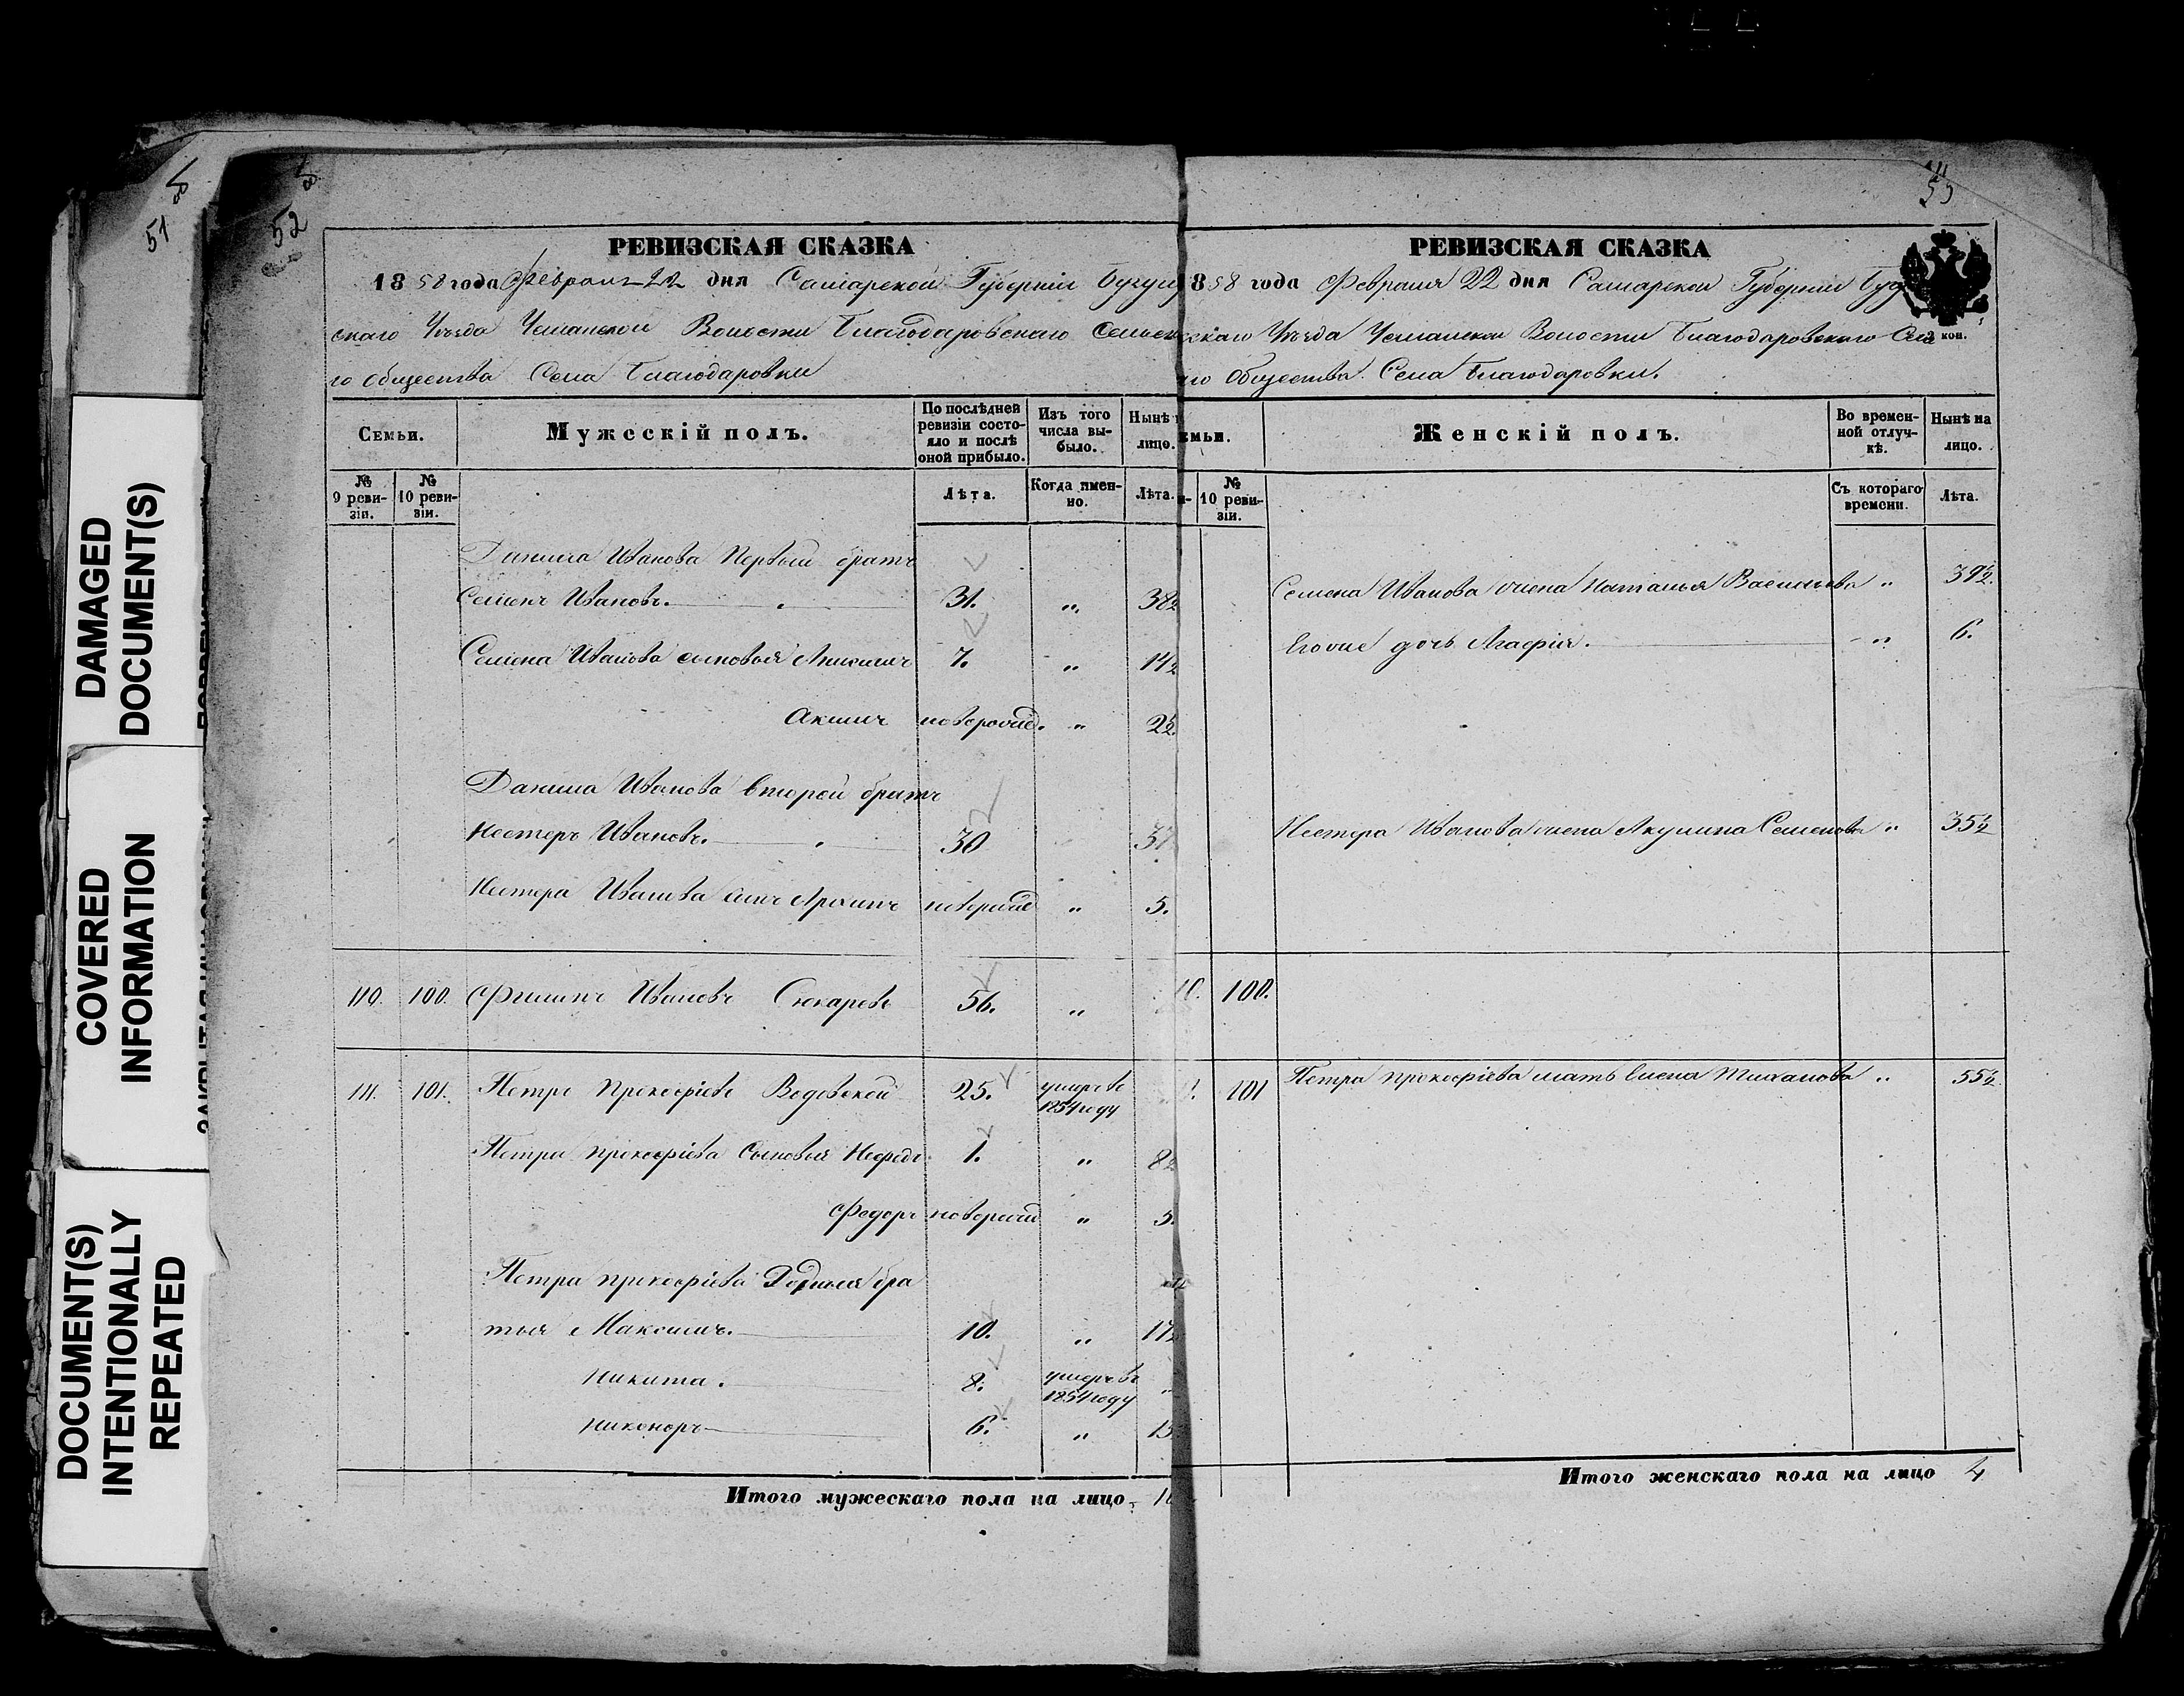 51
52
53
DAMAGED
DOCUMENT(S)
COVERED
INFORMATION
DOCUMENT(S)
INTENTIONALLY
REPEATED
РЕВИЗСКАЯ СКАЗКА
1858 года Февраля 22 дня Самарской Губернии
скаго Уѣзда Чесманской Волости Благодаровскаго
го общества Села Благодаровки
Семьи.
Мужескій полъ.
По послѣдней ревизіи состояло и послѣ оной прибыло.
Изъ того числа выбыло.
Нынѣ
лицо.
№ 9 ревизіи.
№ 10 ревизіи.
Лѣта.
Когда именно.
Лѣта.
Данила Иванова Первый братъ
Семенъ Ивановъ. 31. „ 38½
Семена Иванова сыновья 7. „ 14½
Акимъ новорожд. „ 2½
Данила Иванова второй братъ
Нестеръ Ивановъ. 30 37
Нестера Иванова сынъ новорожд „ 5.
110. 100. Филипъ Ивановъ 56. „
111. 101. Петръ Прокофіевъ 25. умеръ въ 1854 году
Петра Прокофіева Сыновья 1. „ 8½
Федоръ новорожд „ 5.
Петра Прокофіева Родныя бра
тья Максимъ. 10. „ 17½
Никита. 8. умеръ въ 1854 году „
Никоноръ 6. „ 13
Итого мужескаго пола на лицо
РЕВИЗСКАЯ СКАЗКА
858 года Февраля 22 дня Самарской Губерніи Буг
Уѣзда Чесманской Волости Благодаровскаго Сель
го Общества. Села Благодаровки.
3 коп.
мьи.
Женскій полъ.
Во временной отлучкѣ.
Нынѣ на лицо.
№ 10 ревизіи.
Съ котораго времени.
Лѣта.
Семена Иванова жена Наталья Васильева „ 39½.
Его же дочь Агафія. „ 6.
Нестера Иванова жена Акулина Семенова „ 35½
100.
101 Петра Прокофіева мать Елена „ 55½
Итого женскаго пола на лицо 4